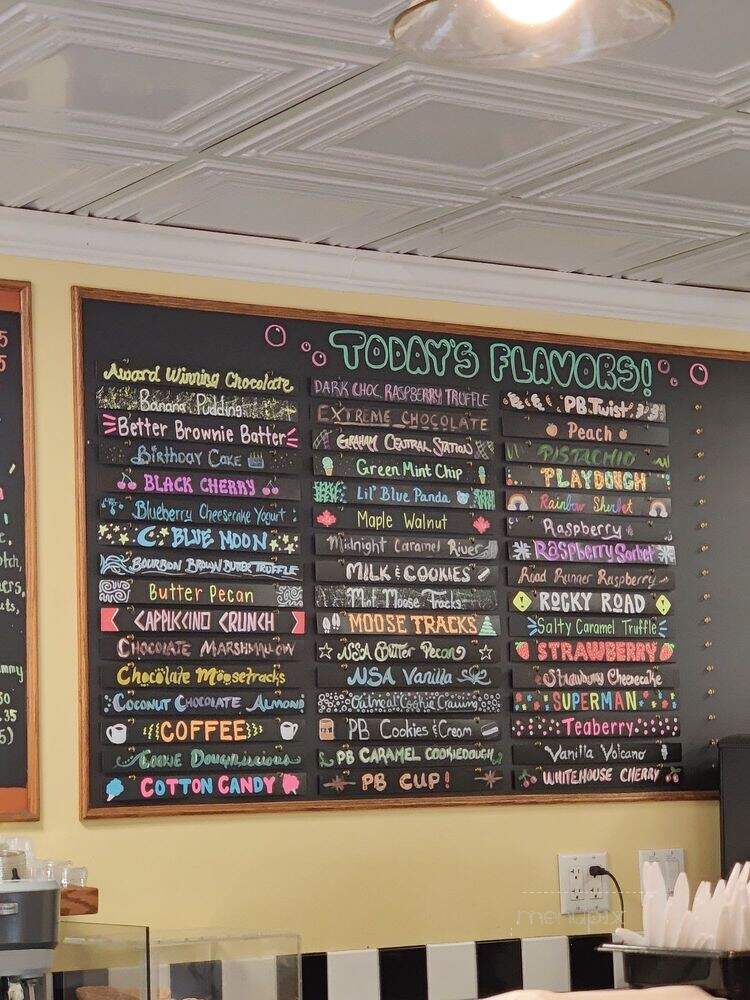 TODAY'S FLAVORS!
Award Winning Chocolate
Banana Pudding
Better Brownie Batter
Birthday Cake
BLACK CHERRY
Blueberry Cheesecake Yogurt
BLUE MOON
BOURBON BROWN BUTTER TRUFFLE
Butter Pecan
CAPPUCCINO CRUNCH
CHOCOLATE MARSHMALLOW
Chocolate Moosetracks
COCONUT CHOCOLATE ALMOND
COFFEE
Cookie Doughlicious
COTTON CANDY
DARK CHOC. RASPBERRY TRUFFLE
EXTREME CHOCOLATE
GRAHAM CENTRAL STATION
Green Mint Chip
Lil' Blue Panda
Maple Walnut
Midnight Caramel River
MILK & COOKIES
Mint Moose Tracks
MOOSE TRACKS
NSA Butter Pecan
NSA Vanilla
Oatmeal Cookie Craving
PB Cookies & Cream
PB CARAMEL COOKIEDOUGH
PB CUP!
PB Twist
Peach
PISTACHIO
PLAYDOUGH
Rainbow Sherbet
Raspberry
Raspberry Sorbet
Road Runner Raspberry
ROCKY ROAD
Salty Caramel Truffle
STRAWBERRY
Strawberry Cheesecake
SUPERMAN
Teaberry
Vanilla Volcano
WHITEHOUSE CHERRY